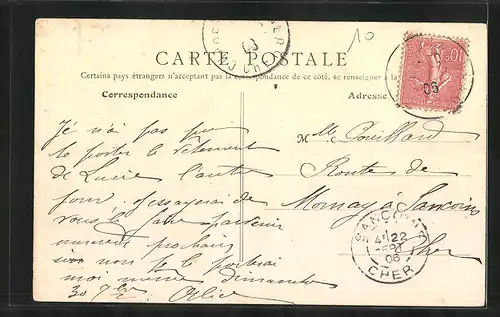 10
CARTE POSTALE
Certains pays étrangers n'acceptant pas la correspondance de ce côté, se renseigner à la
Correspondance
Adresse
Je n'ai pas pu
te porter le vêtement
de Lucie l'autre
jour, j'essayerai de
vous le faire parvenir
mercredi prochain
sinon je te le porterai
moi même dimanche
30 7bre
Mlle
Route de
Mornay à Sancoins
Cher
SANCOINS
22
06
CHER
06
10c